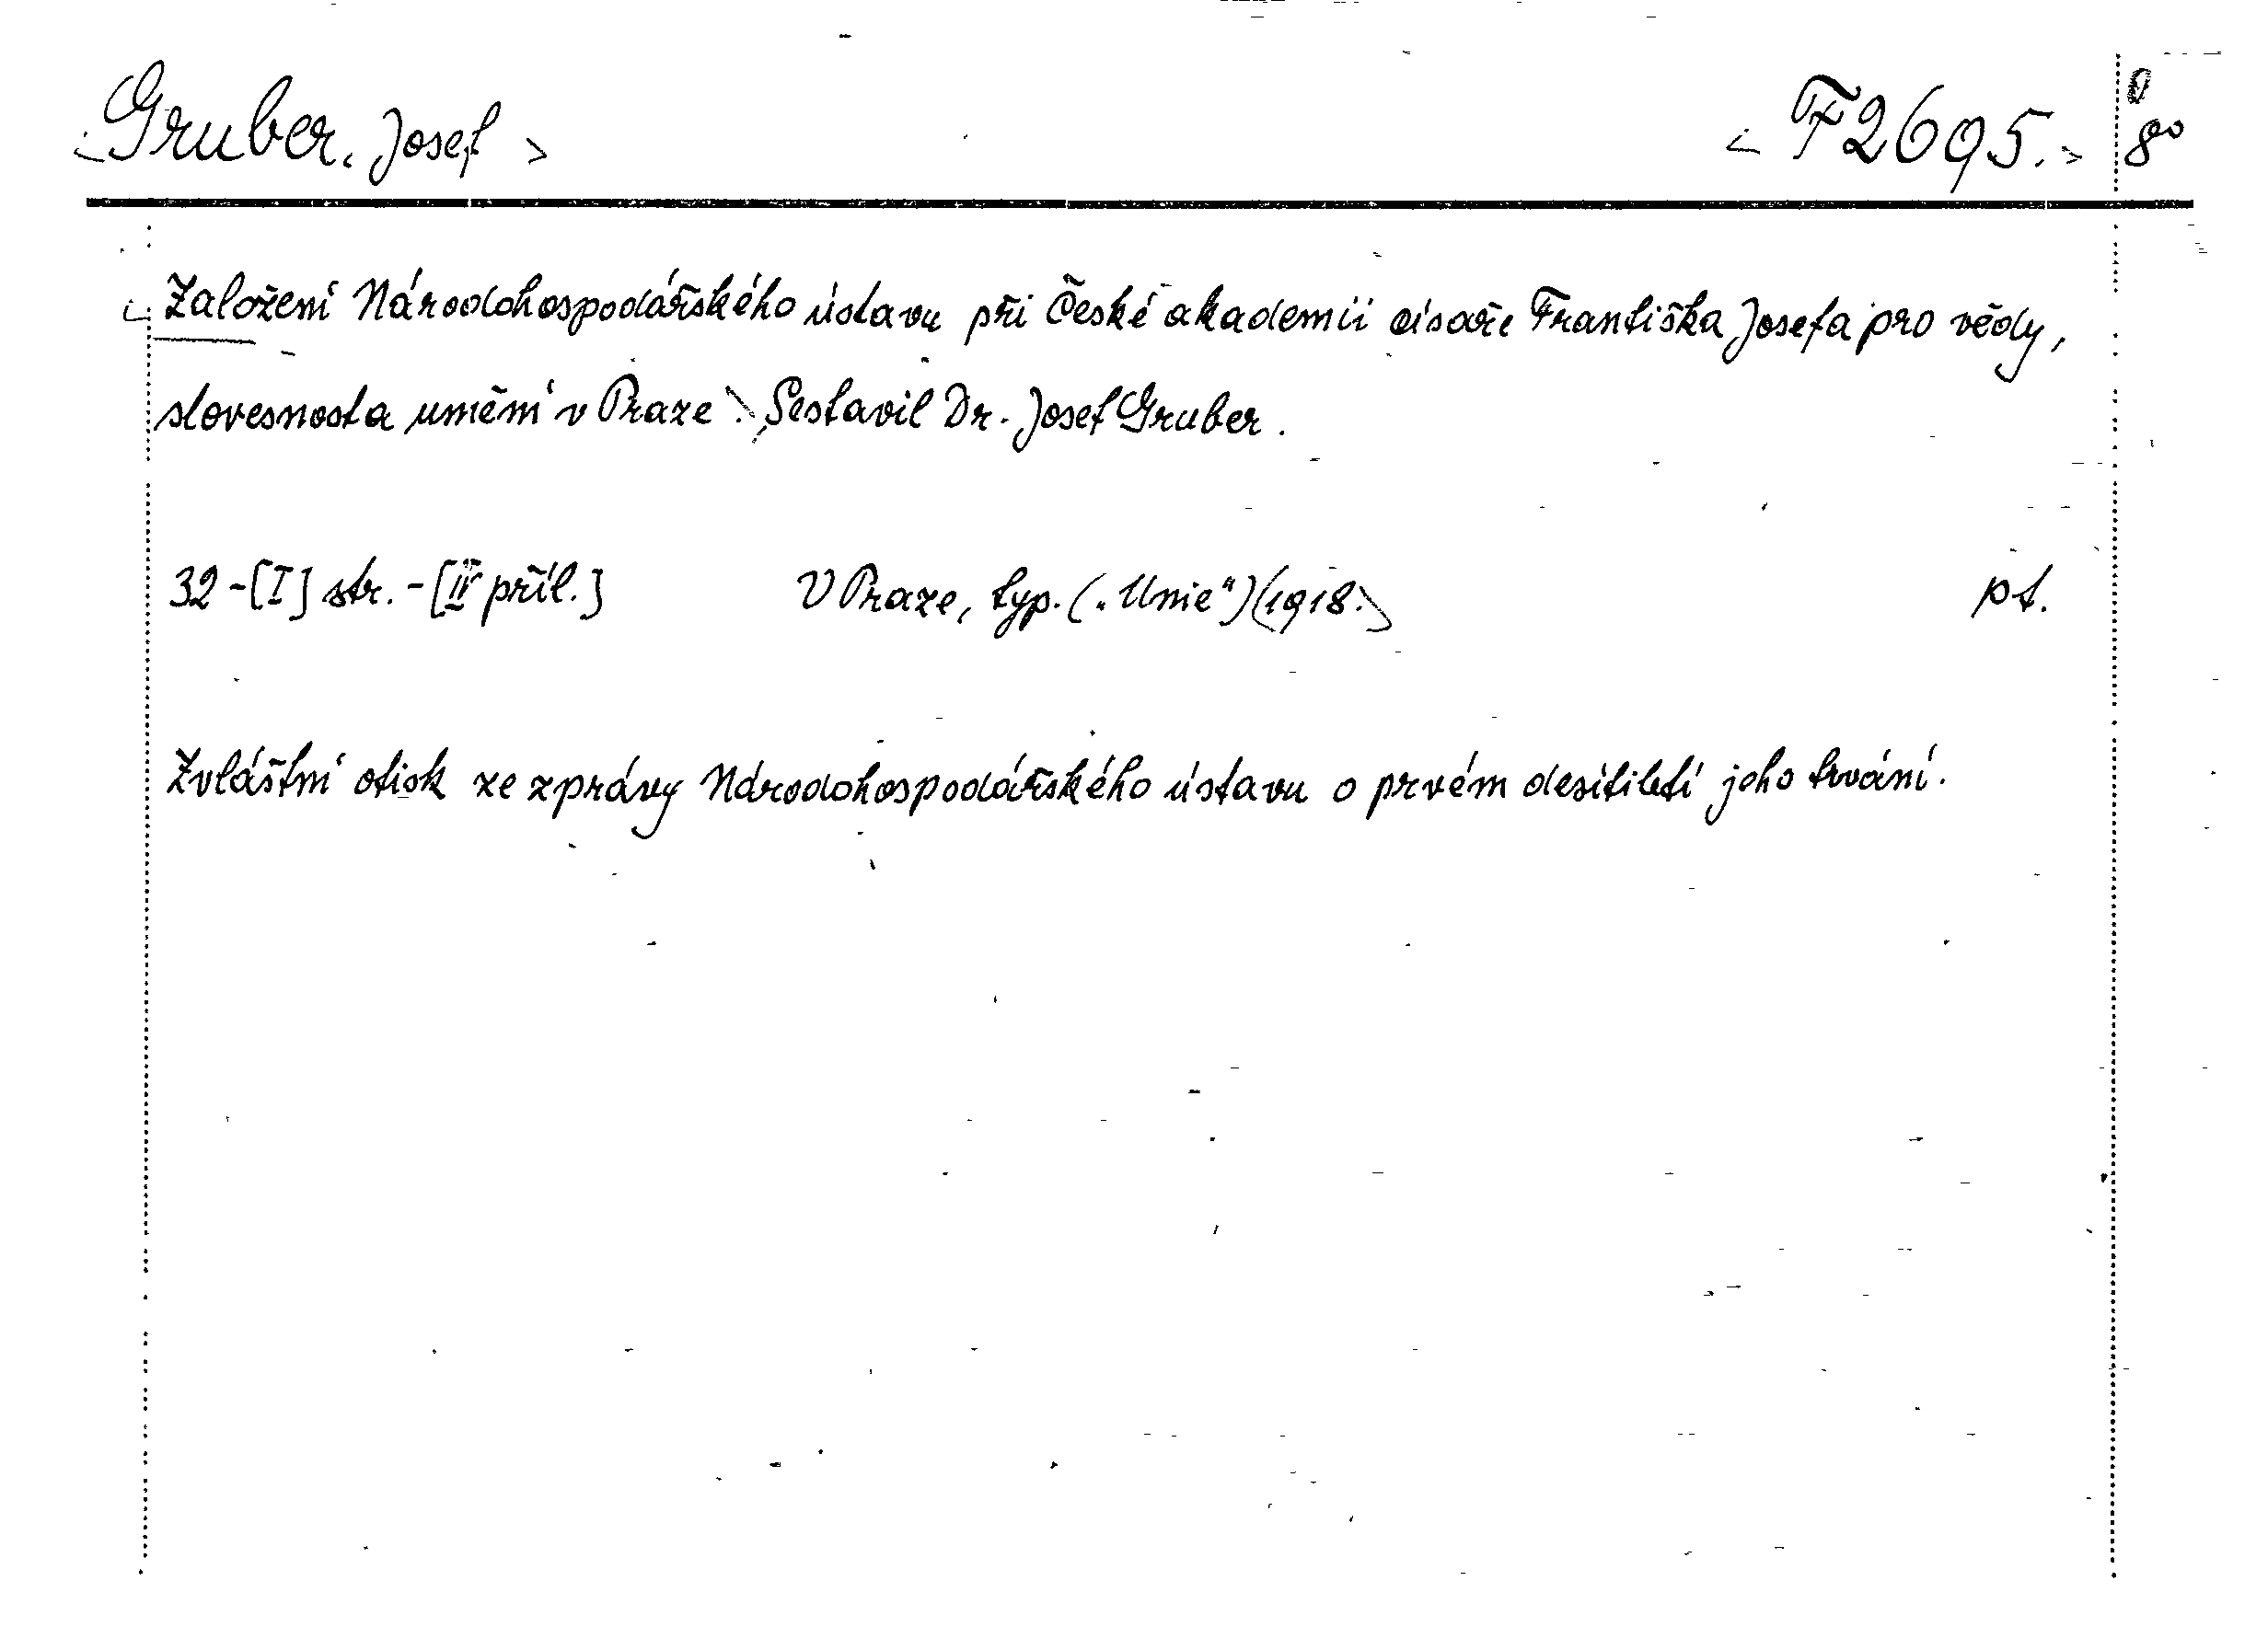 Gruber, Josef F 2695. 8°
Založení Národohospodářského ústavu při České akademii císaře Františka Josefa pro vědy,
slovesnost a umění v Praze. Sestavil Dr. Josef Gruber.
32-[I] str. - [II příl.] V Praze, typ. („Unie") (1918.) pt.
Zvláštní otisk ze zprávy Národohospodářského ústavu o prvém desítiletí jeho trvání.